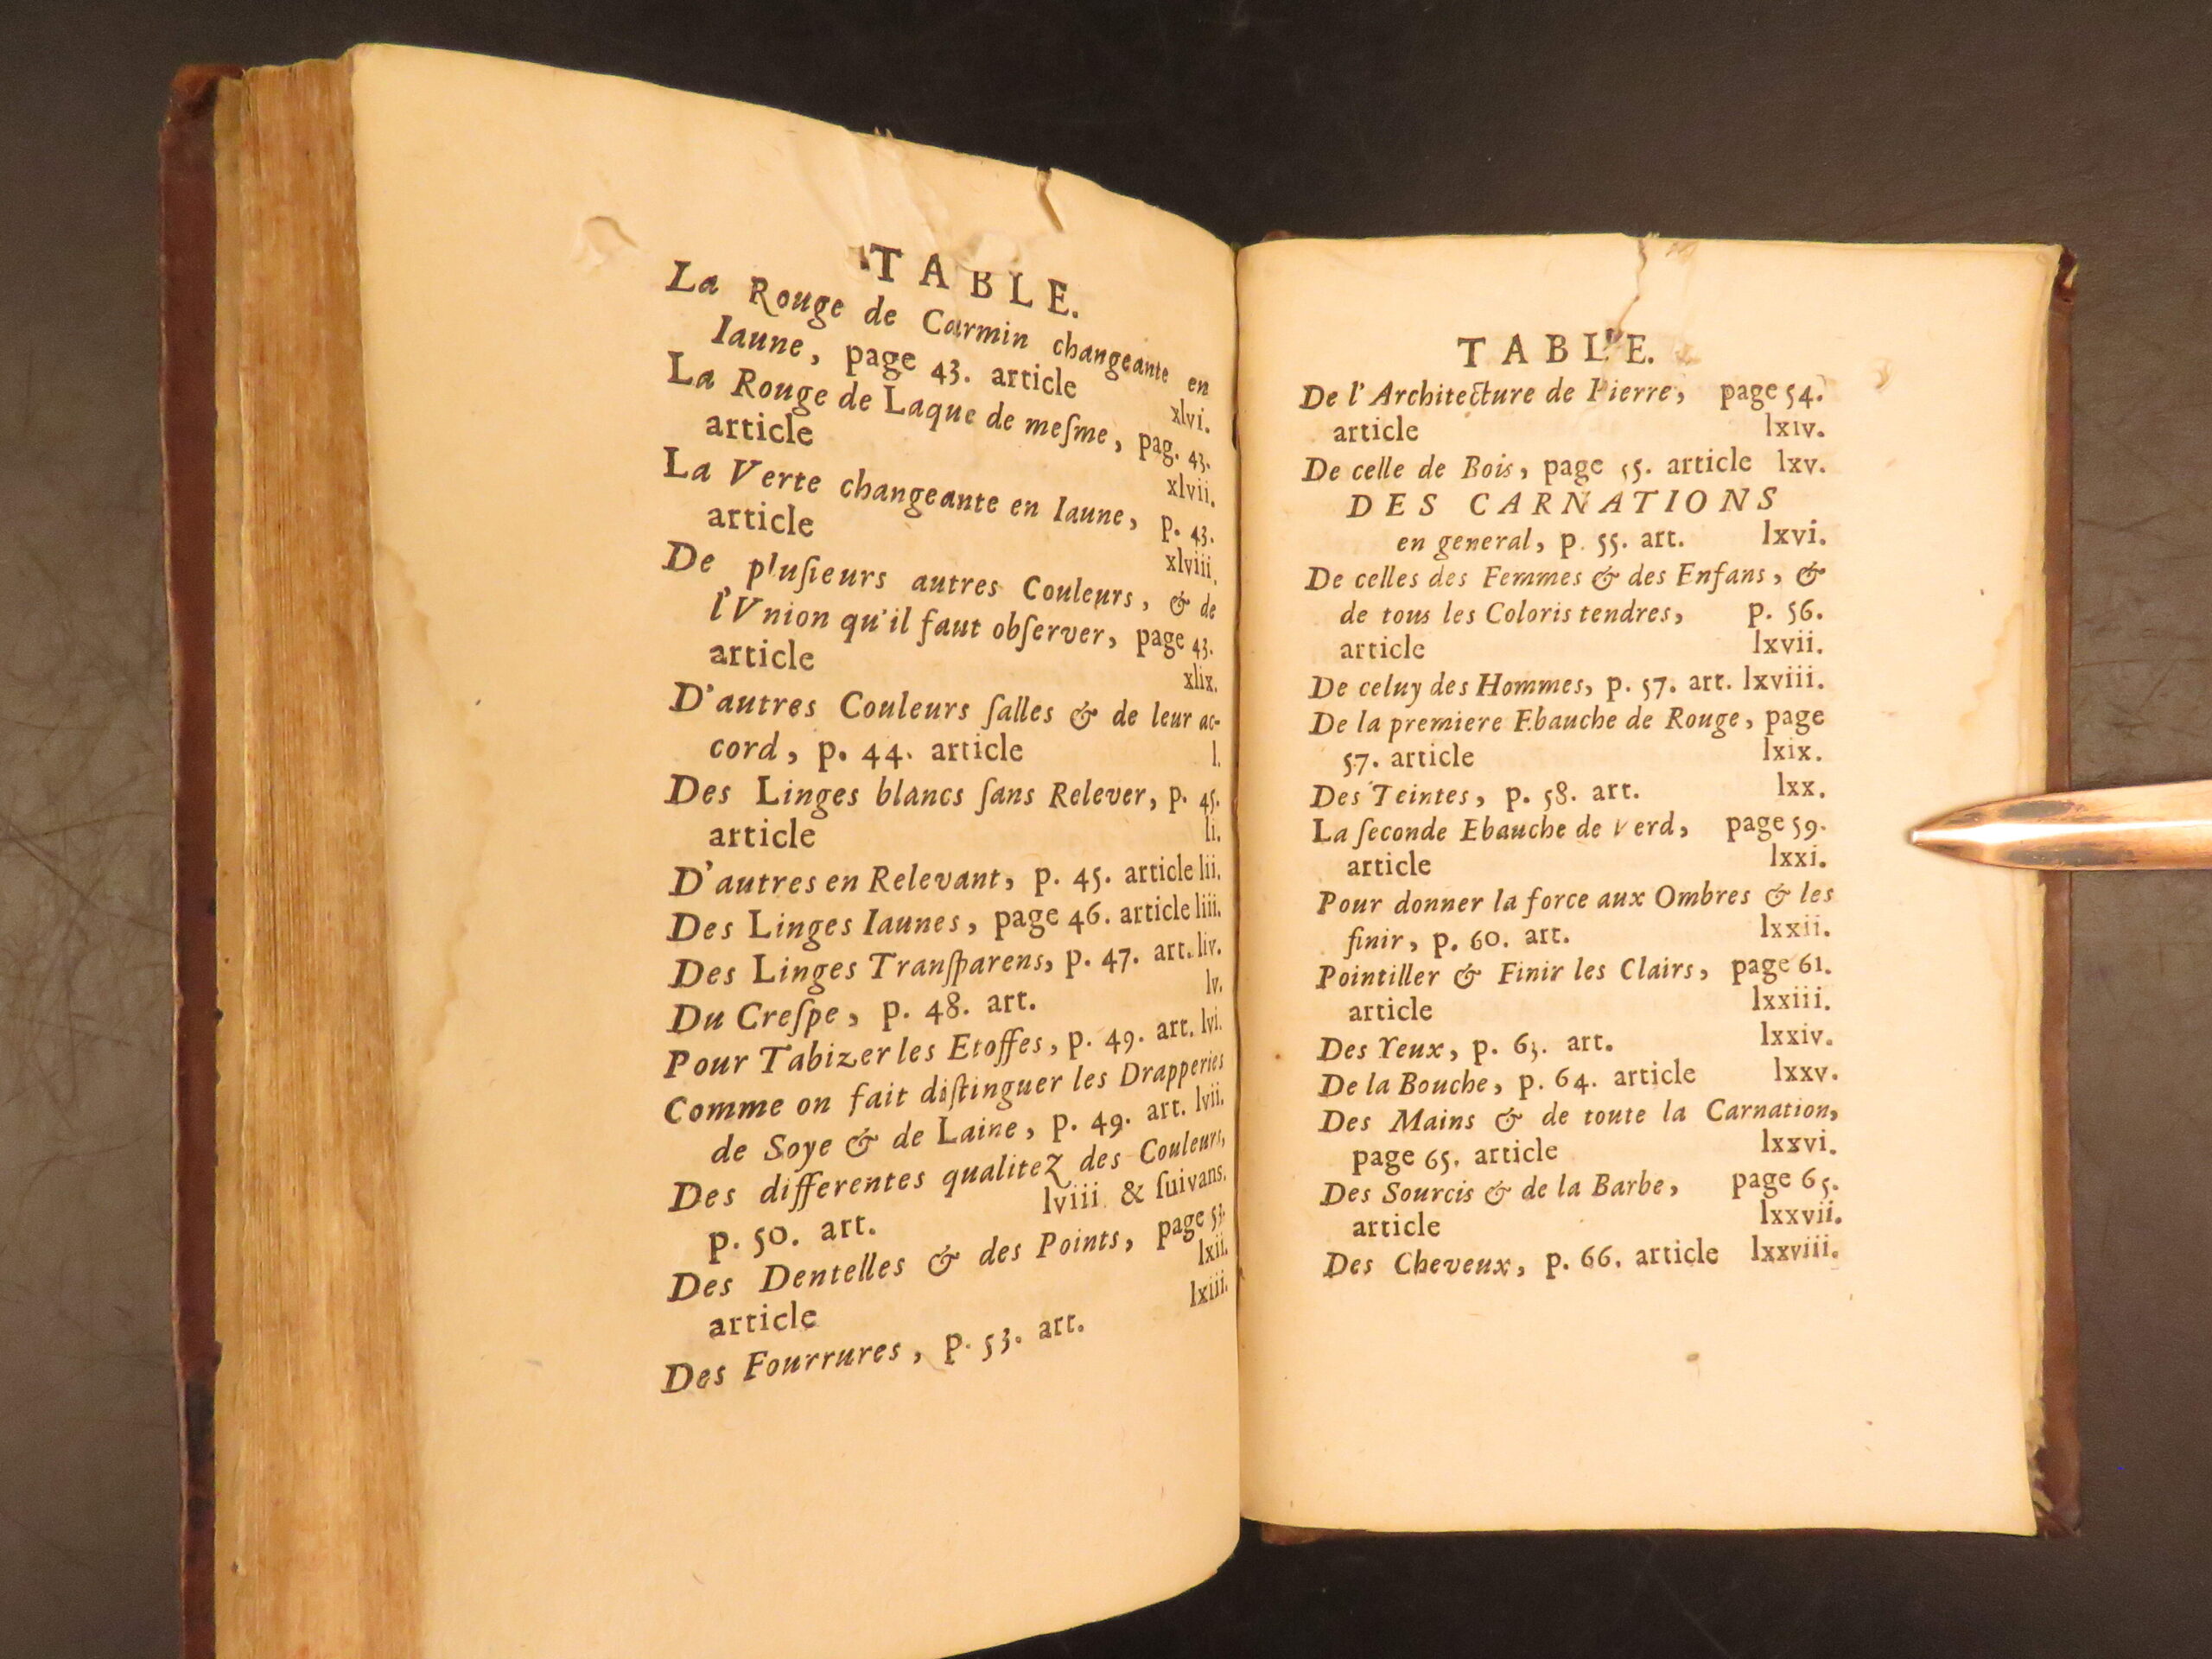 TABLE.
La Rouge de Carmin changeante en
Iaune, page 43. article xlvi.
La Rouge de Laque de meſme, pag. 43.
article xlvii.
La Verte changeante en Iaune, p. 43.
article xlviii.
De pluſieurs autres Couleurs, & de
l'Vnion qu'il faut obſerver, page 43.
article xlix.
D'autres Couleurs ſalles & de leur ac-
cord, p. 44. article l.
Des Linges blancs ſans Relever, p. 45.
article li.
D'autres en Relevant, p. 45. article lii.
Des Linges Iaunes, page 46. article liii.
Des Linges Tranſparens, p. 47. art. liv.
Du Creſpe, p. 48. art. lv.
Pour Tabizer les Etoffes, p. 49. art. lvi.
Comme on fait diſtinguer les Drapperies
de Soye & de Laine, p. 49. art. lvii.
Des differentes qualitez des Couleurs,
p. 50. art. lviii. & ſuivans.
Des Dentelles & des Points, page 53.
article lxii.
Des Fourrures, p. 53. art. lxiii.
TABLE.
De l'Architecture de Pierre, page 54.
article lxiv.
De celle de Bois, page 55. article lxv.
DES CARNATIONS
en general, p. 55. art. lxvi.
De celles des Femmes & des Enfans, &
de tous les Coloris tendres, p. 56.
article lxvii.
De celuy des Hommes, p. 57. art. lxviii.
De la premiere Ebauche de Rouge, page
57. article lxix.
Des Teintes, p. 58. art. lxx.
La ſeconde Ebauche de Verd, page 59.
article lxxi.
Pour donner la force aux Ombres & les
finir, p. 60. art. lxxii.
Pointiller & Finir les Clairs, page 61.
article lxxiii.
Des Yeux, p. 63. art. lxxiv.
De la Bouche, p. 64. article lxxv.
Des Mains & de toute la Carnation,
page 65. article lxxvi.
Des Sourcis & de la Barbe, page 65.
article lxxvii.
Des Cheveux, p. 66. article lxxviii.